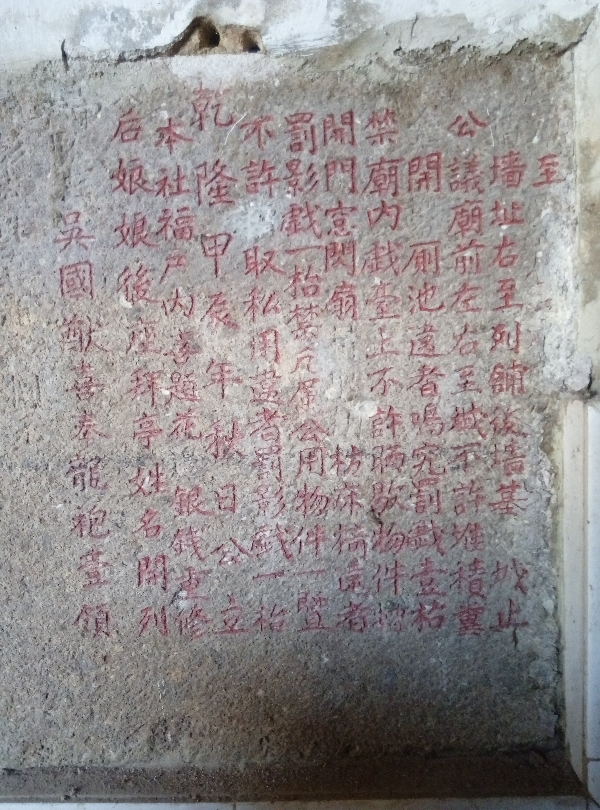 至
墙址右至列舖後墙基 城止
公議廟前左右至城不許堆積糞
開 厠池違者鳴究罰戲壹枱
禁廟内戯臺上不許晒散物件
開門窓閃扇
罰影戯一枱禁 公用物件一暨
不許 取私用 者罰影戯一枱
乾隆甲辰年秋日公立
本社福户内喜題花 銀錢重修
后娘娘後座拜亭姓名開列
吳國猷喜奉龍袍壹領